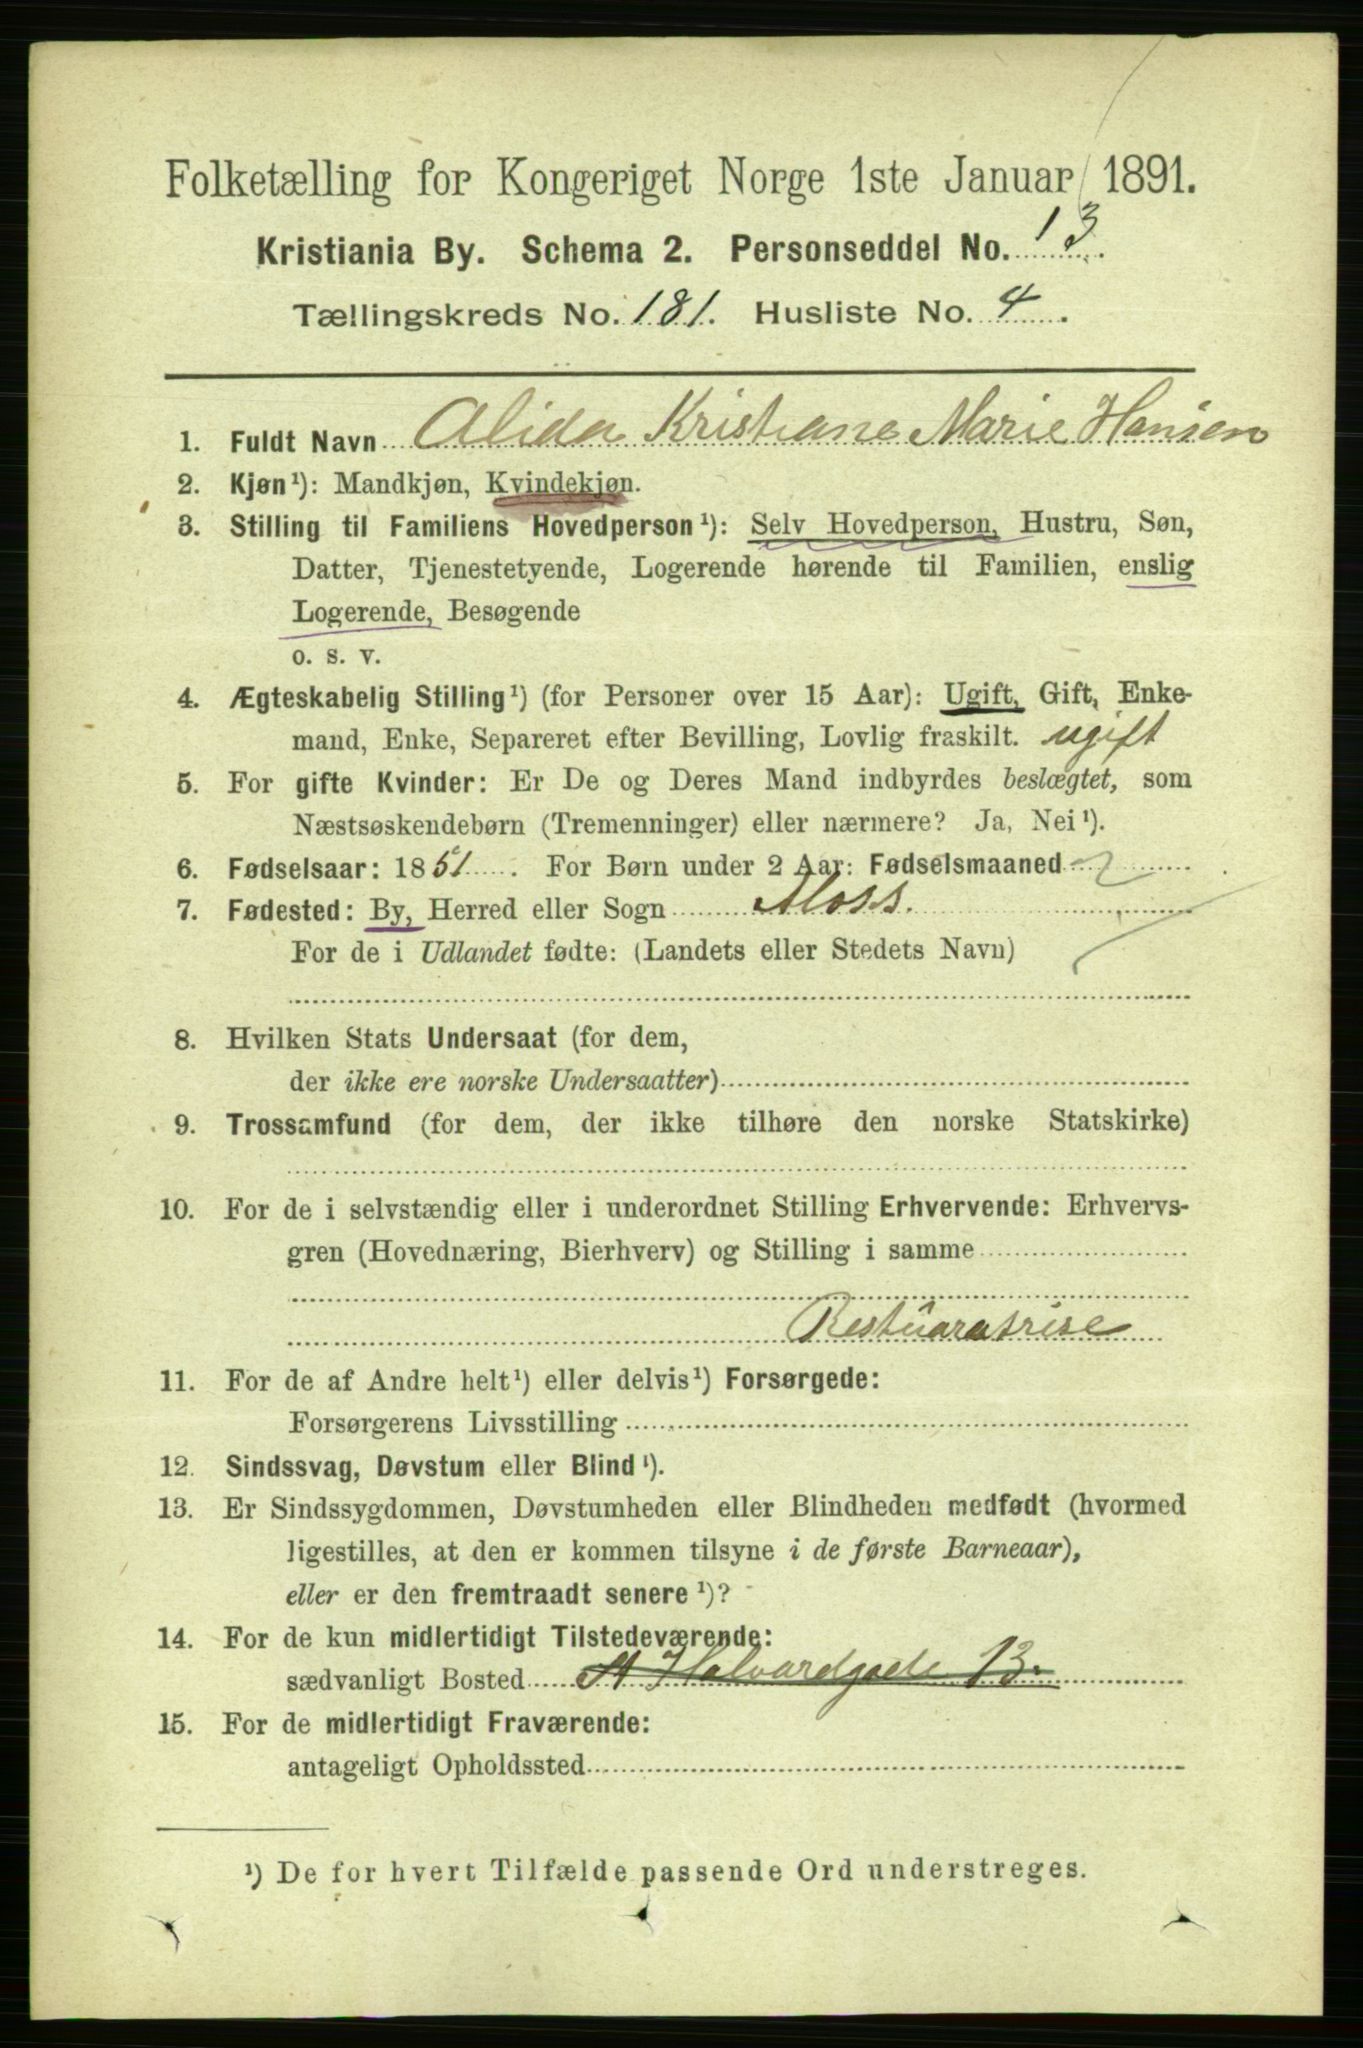 Folketælling for Kongeriget Norge 1ste Januar 1891.
Kristiania By. Schema 2. Personseddel No. 13.
Tællingskreds No. 181. Husliste No. 4.
1. Fuldt Navn Alida Kristiane Marie Hansen
2. Kjøn¹): Mandkjøn, Kvindekjøn.
3. Stilling til Familiens Hovedperson¹): Selv Hovedperson, Hustru, Søn,
Datter, Tjenestetyende, Logerende hørende til Familien, enslig
Logerende, Besøgende
o. s. v.
4. Ægteskabelig Stilling¹) (for Personer over 15 Aar): Ugift, Gift, Enke-
mand, Enke, Separeret efter Bevilling, Lovlig fraskilt. ugift
5. For gifte Kvinder: Er De og Deres Mand indbyrdes beslægtet, som
Næstsøskendebørn (Tremenninger) eller nærmere? Ja, Nei¹).
6. Fødselsaar: 1851. For Børn under 2 Aar: Fødselsmaaned
7. Fødested: By, Herred eller Sogn Moss.
For de i Udlandet fødte: (Landets eller Stedets Navn)
8. Hvilken Stats Undersaat (for dem,
der ikke ere norske Undersaatter)
9. Trossamfund (for dem, der ikke tilhøre den norske Statskirke)
10. For de i selvstændig eller i underordnet Stilling Erhvervende: Erhvervs-
gren (Hovednæring, Bierhverv) og Stilling i samme
Restuaratrise
11. For de af Andre helt¹) eller delvis¹) Forsørgede:
Forsørgerens Livsstilling
12. Sindssvag, Døvstum eller Blind¹).
13. Er Sindssygdommen, Døvstumheden eller Blindheden medfødt (hvormed
ligestilles, at den er kommen tilsyne i de første Barneaar),
eller er den fremtraadt senere¹)?
14. For de kun midlertidigt Tilstedeværende:
sædvanligt Bosted St Halvardgade 13.
15. For de midlertidigt Fraværende:
antageligt Opholdssted
¹) De for hvert Tilfælde passende Ord understreges.